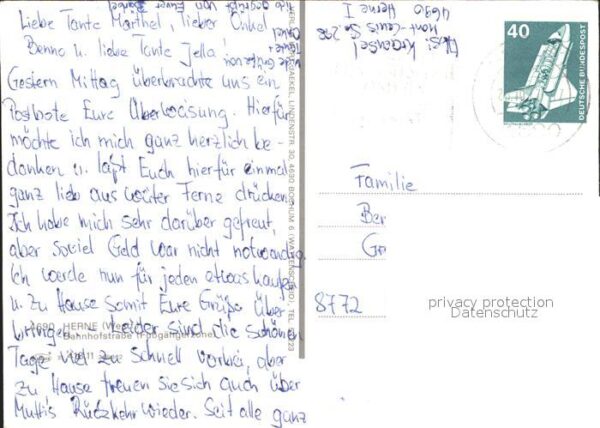 Liebe Tante Märthel, lieber Onkel
Benno u. liebe Tante Jella!
Gestern Mittag überbrachte uns ein
Postbote Eure Überweisung. Hierfür
möchte ich mich ganz herzlich be-
danken u. laßt Euch hierfür einmal
ganz lieb aus weiter Ferne drücken.
Ich habe mich sehr darüber gefreut,
aber soviel Geld war nicht notwendig.
Ich werde nun für jeden etwas kaufen
u. zu Hause somit Eure Grüße über
bringen. Leider sind die schönen
Tage viel zu schnell vorbei, aber
zu Hause freuen sie sich auch über
Mutti's Rückkehr wieder. Seit alle ganz
lieb gegrüßt von Eurer
4690 HERNE
Bahnhofstraße (Fußgängerzone)
LINDENSTR. 30, 4630 BOCHUM 6 (WATTENSCHEID), TEL.
Abs.: Kraensel
Mont-Cenis Str. 292
4690 Herne 1
40
DEUTSCHE BUNDESPOST
Familie
Ber
Gr
8772
privacy protection
Datenschutz